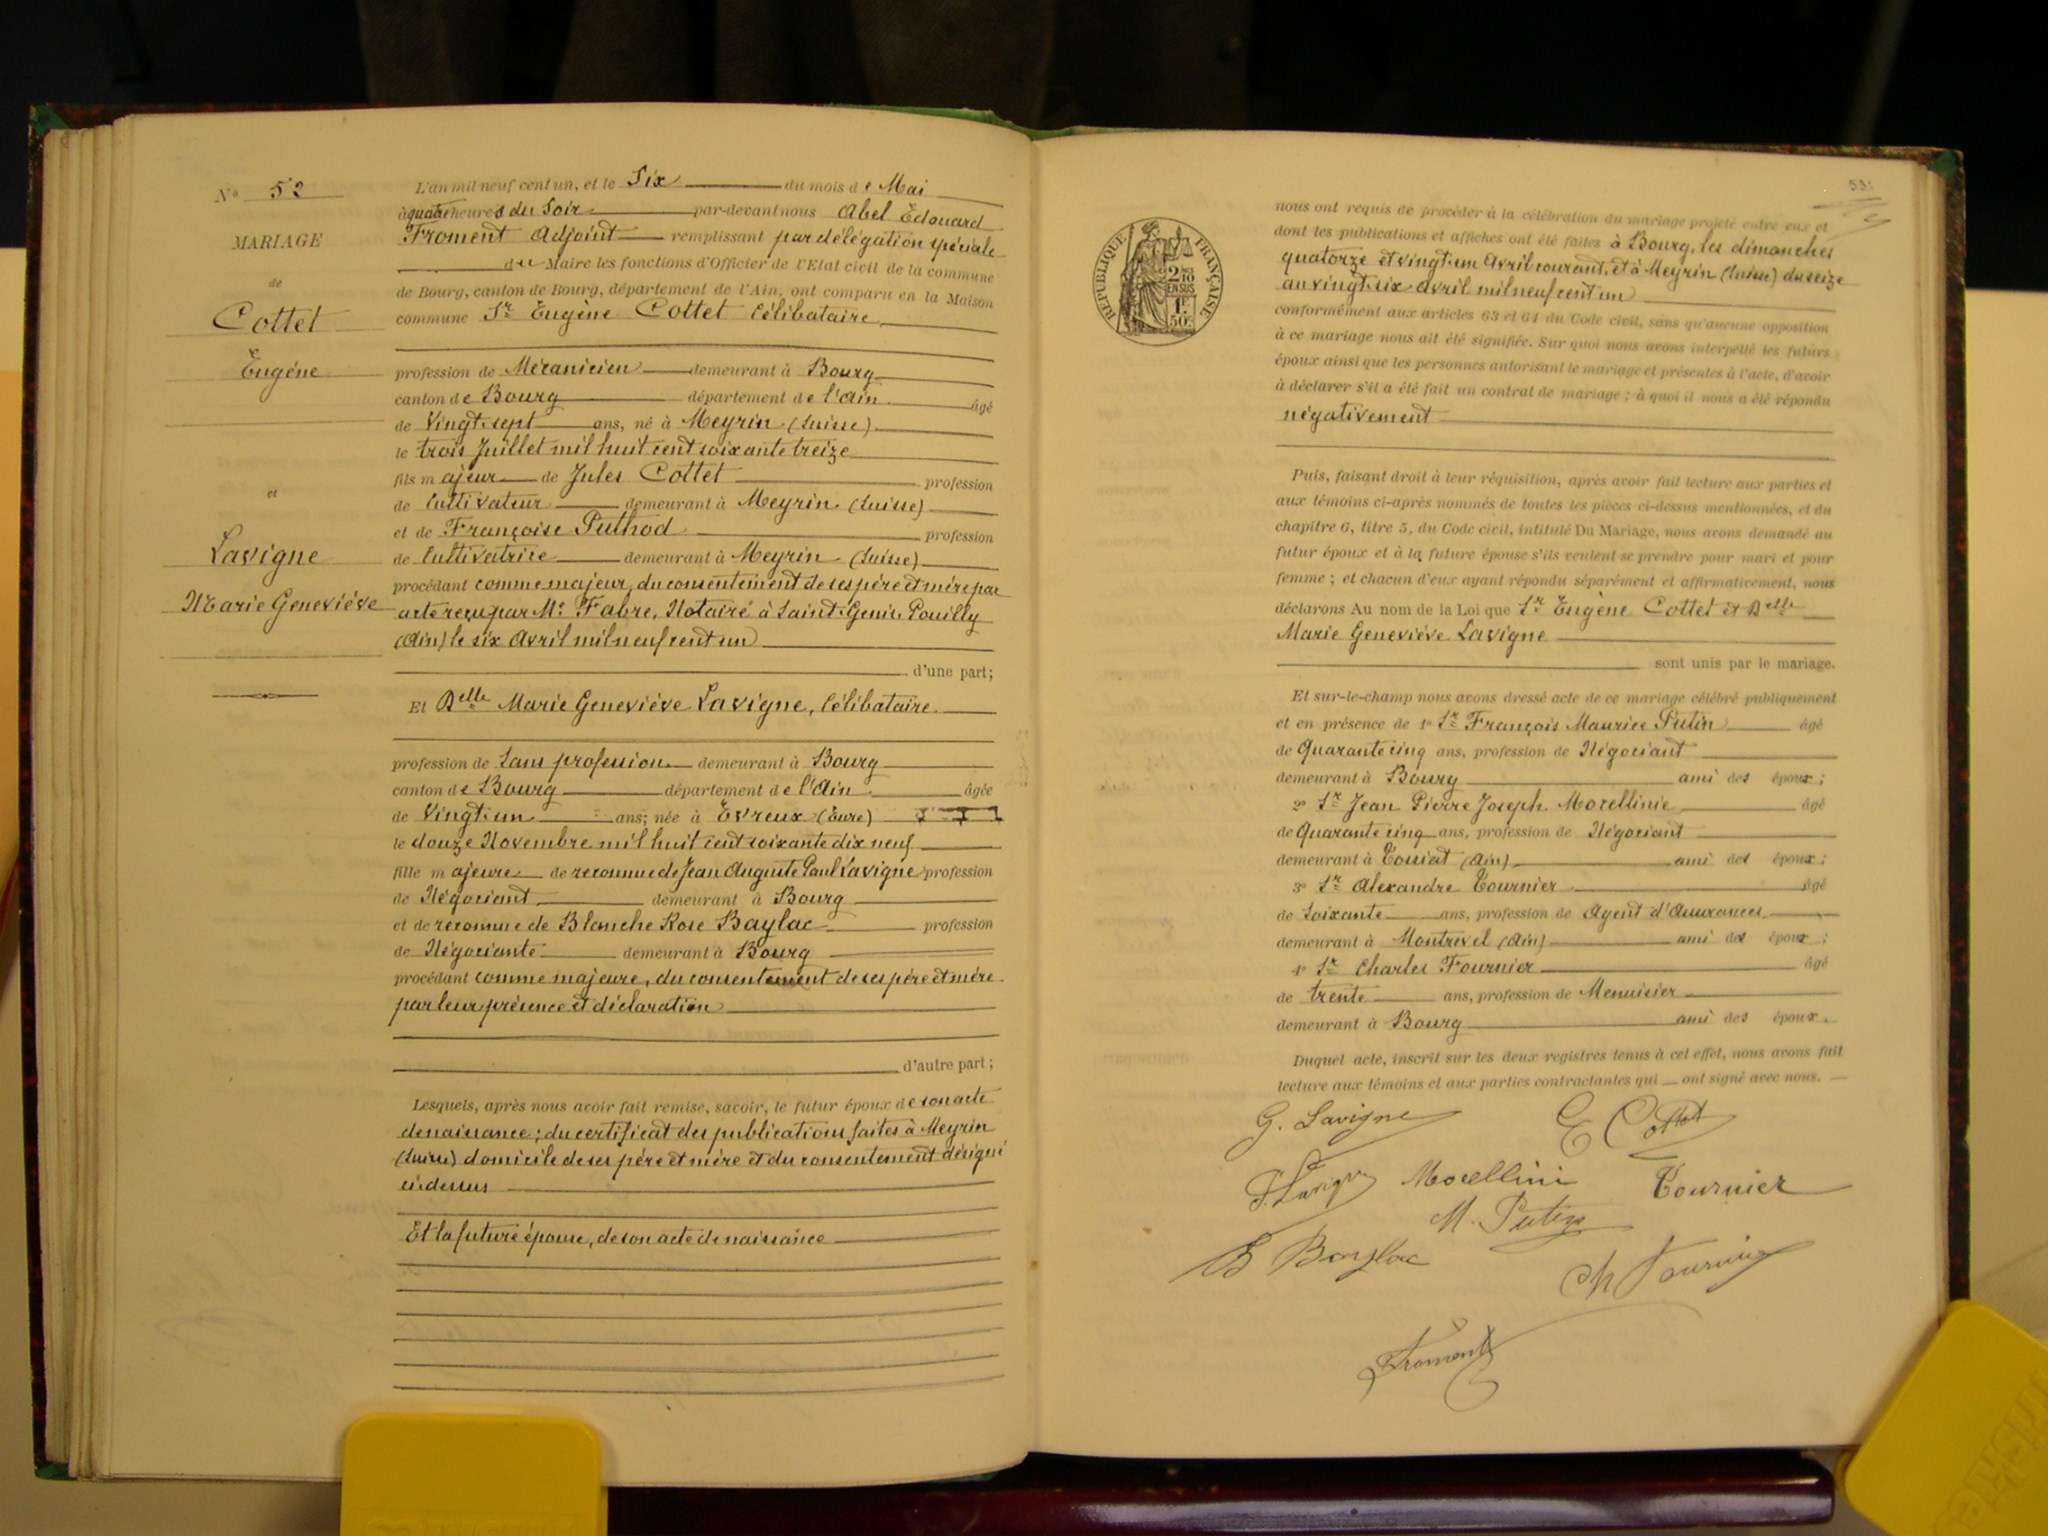 N° 52
MARIAGE
de
Cottet
Eugéne
et
Lavigne
Marie Geneviéve
L'an mil neuf cent un, et le Six du mois de Mai
à quatre heures du Soir par-devant nous Abel Edouard
Froment Adjoint remplissant par délégation spéciale
du Maire les fonctions d'Officier de l'Etat civil de la commune
de Bourg, canton de Bourg, département de l'Ain, ont comparu en la Maison
commune Sr Eugène Cottet Célibataire
profession de Mécanicien demeurant à Bourg
canton de Bourg département de l'Ain âgé
de Vingt sept ans, né à Meyrin (Suisse)
le trois Juillet mil huit cent soixante treize
fils majeur de Jules Cottet profession
de Cultivateur demeurant à Meyrin (Suisse)
et de Françoise Puthod profession
de Cultivatrice demeurant à Meyrin (Suisse)
procédant comme majeur, du consentement de ses père et mère par
acte reçu par Me Fabre, Notaire à Saint-Genis Pouilly
(Ain) le six Avril mil neuf cent un
d'une part;
Et Delle Marie Geneviéve Lavigne, Célibataire
profession de Sans profession demeurant à Bourg
canton de Bourg département de l'Ain âgée
de Vingt un ans; née à Evreux (Eure)
le douze Novembre mil huit cent soixante dix neuf
fille majeure de reconnue de Jean Auguste Paul Lavigne profession
de Négociant demeurant à Bourg
et de reconnue de Blanche Rose Baylac profession
de Négociante demeurant à Bourg
procédant comme majeure, du consentement de ses père et mère
par leur présence et déclaration
d'autre part;
Lesquels, après nous avoir fait remise, savoir, le futur époux de son acte
de naissance; du certificat des publications faites à Meyrin
(Suisse) domicile de ses père et mère et du consentement désigné
ci-dessus
Et la future épouse, de son acte de naissance
53
RÉPUBLIQUE FRANÇAISE
2/10
EN SUS
1F
50c
nous ont requis de procéder à la célébration du mariage projeté entre eux et
dont les publications et affiches ont été faites à Bourg, les dimanches
quatorze et vingt un Avril courant, et à Meyrin (Suisse) du seize
au vingt six avril mil neuf cent un
conformément aux articles 63 et 64 du Code civil, sans qu'aucune opposition
à ce mariage nous ait été signifiée. Sur quoi nous avons interpellé les futurs
époux ainsi que les personnes autorisant le mariage et présentes à l'acte, d'avoir
à déclarer s'il a été fait un contrat de mariage; à quoi il nous a été répondu
négativement
Puis, faisant droit à leur réquisition, après avoir fait lecture aux parties et
aux témoins ci-après nommés de toutes les pièces ci-dessus mentionnées, et du
chapitre 6, titre 5, du Code civil, intitulé Du Mariage, nous avons demandé au
futur époux et à la future épouse s'ils veulent se prendre pour mari et pour
femme; et chacun d'eux ayant répondu séparément et affirmativement, nous
déclarons Au nom de la Loi que Sr Eugène Cottet et Delle
Marie Geneviéve Lavigne
sont unis par le mariage.
Et sur-le-champ nous avons dressé acte de ce mariage célébré publiquement
et en présence de 1° Sr François Maurice Putin âgé
de Quarante cinq ans, profession de Négociant
demeurant à Bourg ami des époux;
2° Sr Jean Pierre Joseph Morellinie âgé
de Quarante cinq ans, profession de Négociant
demeurant à Tossiat (Ain) ami des époux;
3° Sr Alexandre Tournier âgé
de Soixante ans, profession de Agent d'Assurances
demeurant à Montrevel (Ain) ami des époux;
4° Sr Charles Fournier âgé
de trente ans, profession de Menuisier
demeurant à Bourg ami des époux.
Duquel acte, inscrit sur les deux registres tenus à cet effet, nous avons fait
lecture aux témoins et aux parties contractantes qui ont signé avec nous.
G. Lavigne E Cottet
Lavigne Morellini Tournier
M. Putin
B Baylac Ch Fournier
Froment